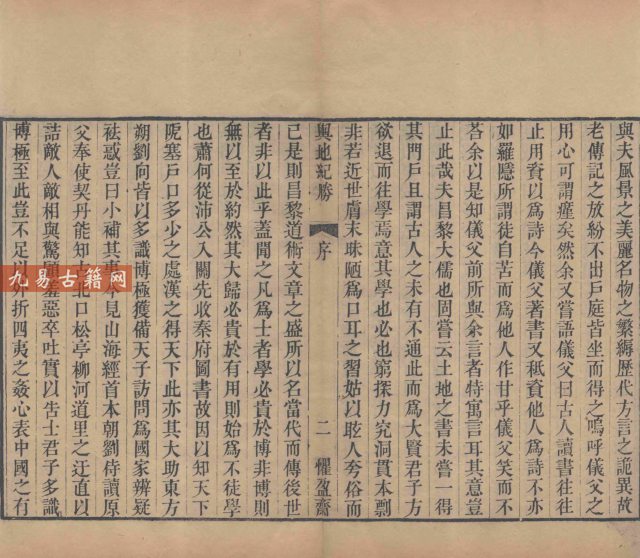 與夫風景之美麗名物之繁縟歷代方言之詭異故
老傳記之放紛不出戶庭皆坐而得之嗚呼儀父之
用心可謂癯矣然余又嘗語儀父曰古人讀書往往
止用資以爲詩今儀父著書又秪資他人爲詩不亦
如羅隱所謂徒自苦而爲他人作甘乎儀父笑而不
荅余以是知儀父前所與余言者特寓言耳其意豈
止此哉夫昌黎大儒也固嘗云土地之書未嘗一得
其門戶且謂古人之未有不通此而爲大賢君子方
欲退而往學焉意其學也必也窮探力究洞貫本剽
非若近世膚末昧陋爲口耳之習姑以眩人夸俗而
輿地紀勝 序 二 懼盈齋
已是則昌黎道術文章之盛所以名當代而傳後世
者非以此乎蓋聞之凡爲士者學必貴於博非博則
無以至於約然其大歸必貴於有用則始爲不徒學
也蕭何從沛公入關先收秦府圖書故因以知天下
阨塞戶口多少之處漢之得天下此亦其大助東方
朔劉向皆以多識博極獲備天子訪問爲國家辨疑
袪惑豈曰小補其事今見山海經首本朝劉侍讀原
父奉使契丹能知古北口松亭柳河道里之迂直以
詰敵人敵相與驚顧羞惡卒吐實以告士君子多識
博極至此豈不足以外折四夷之姦心表中國之有
九易古籍网